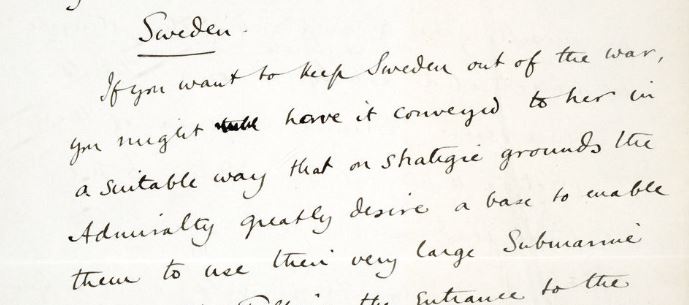 Sweden.
If you want to keep Sweden out of the war,
you might have it conveyed to her in
a suitable way that on strategic grounds the
Admiralty greatly desire a base to enable
them to use their very large Submarine
the Entrance to the